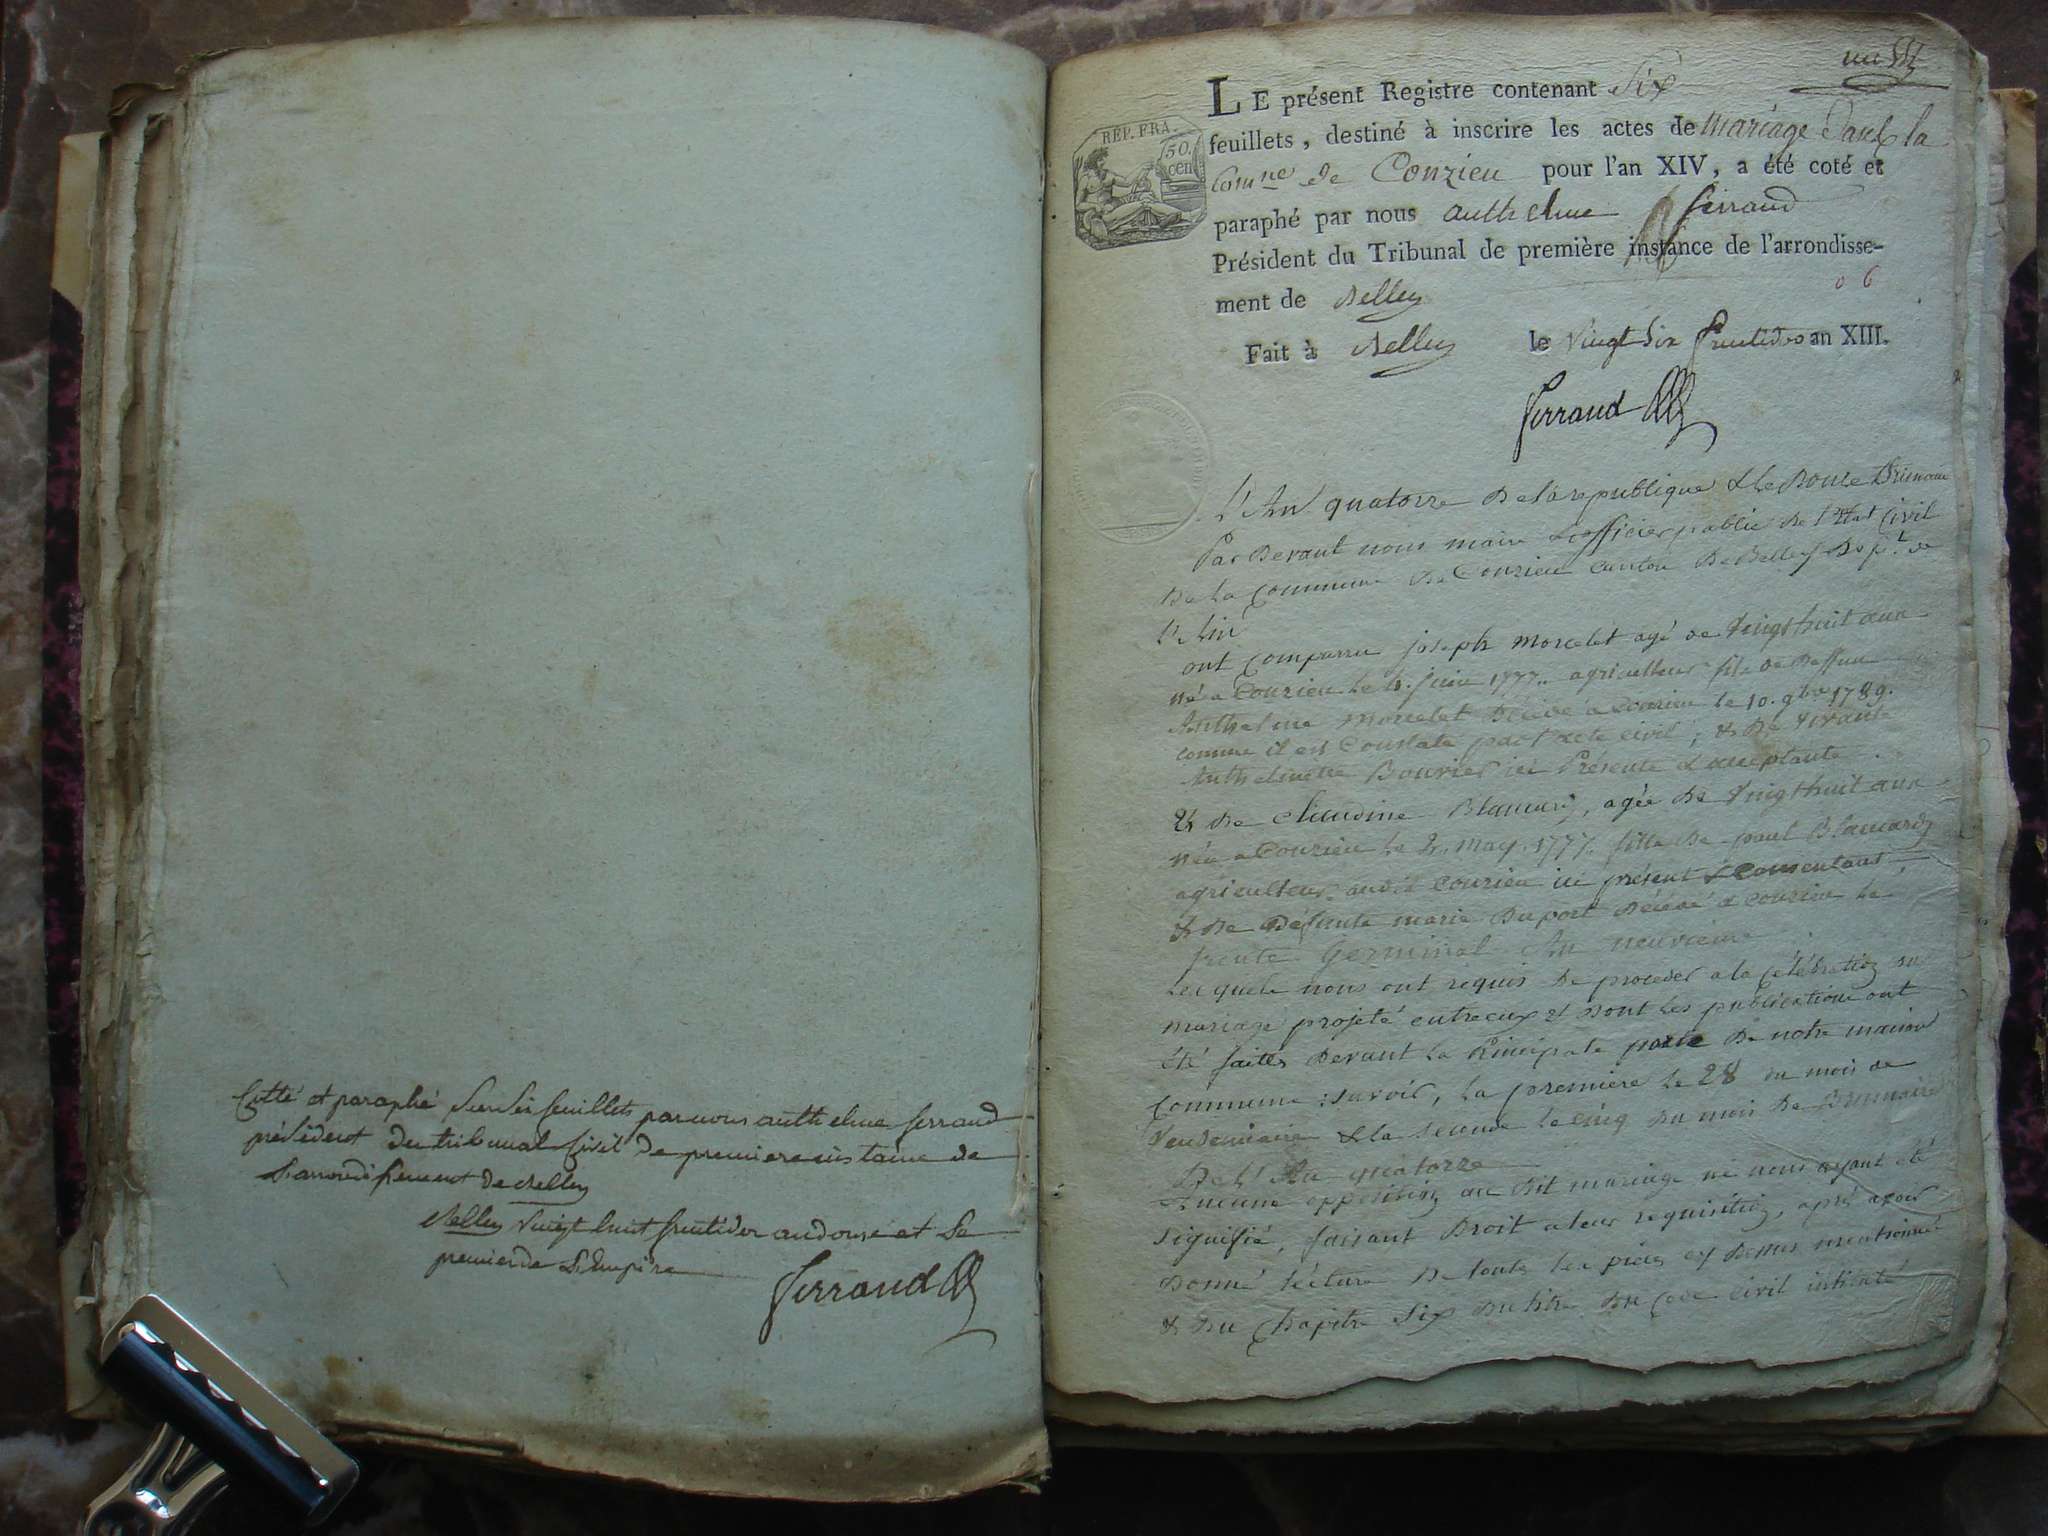 Cotté et paraphé sur six feuillets par nous anthelme ferrand
président du tribunal Civil de premiere instance de
L'arrondissement de Belley
Belley vingt huit fructidor an douze et Le
premier de L'Empire
ferrand
un
LE présent Registre contenant Six
feuillets, destiné à inscrire les actes de mariage dans la
Comne de Conzieu pour l'an XIV, a été coté et
paraphé par nous anthelme ferrand
Président du Tribunal de première instance de l'arrondisse-
ment de Belley
06
Fait à Belley le vingt six fructidor an XIII.
ferrand
RÉP. FRA.
50.
cen
L'An quatorze De la republique & le Douze Brumaire
Par Devant nous maire & officier public de l'Etat Civil
De la Commune De Conzieu canton De Belley Dept. de
L'Ain
ont comparru joseph morcelet agé de vingt huit ans
né a Conzieu le 4. juin 1777. agriculteur fils de Deffunt
Anthelme morcelet Décédé a Conzieu le 10. 9bre 1789.
comme il est Constaté par l'acte civil ; & De vivante
Anthelmette Bouvier ici Présente & acceptante
Et De Claudine Blancard, agée De vingt huit ans
née a Conzieu le 2. may. 1777. fille De paul Blancard
agriculteur audit Conzieu ici présent & Consentant
& De Defunte marie Duport Décédé a Conzieu le
trente Germinal An neuvieme
Lesquels nous ont requis De proceder a la Célébration du
mariage projeté entreeux & dont les publications ont
été faites Devant la Principale porte De notre maison
Commune : savoir, la premiere le 28 du mois de
Vendemiaire & la seconde le cinq du mois De Brumaire
De l'An quatorze
Aucune opposition au Dit mariage ne nous ayant été
signifié, faisant Droit a leur requisition, après avoir
Donné lecture De toutes les pièces cy Dessus mentionné
& Du Chapitre Six Du titre Du Code civil intitulé